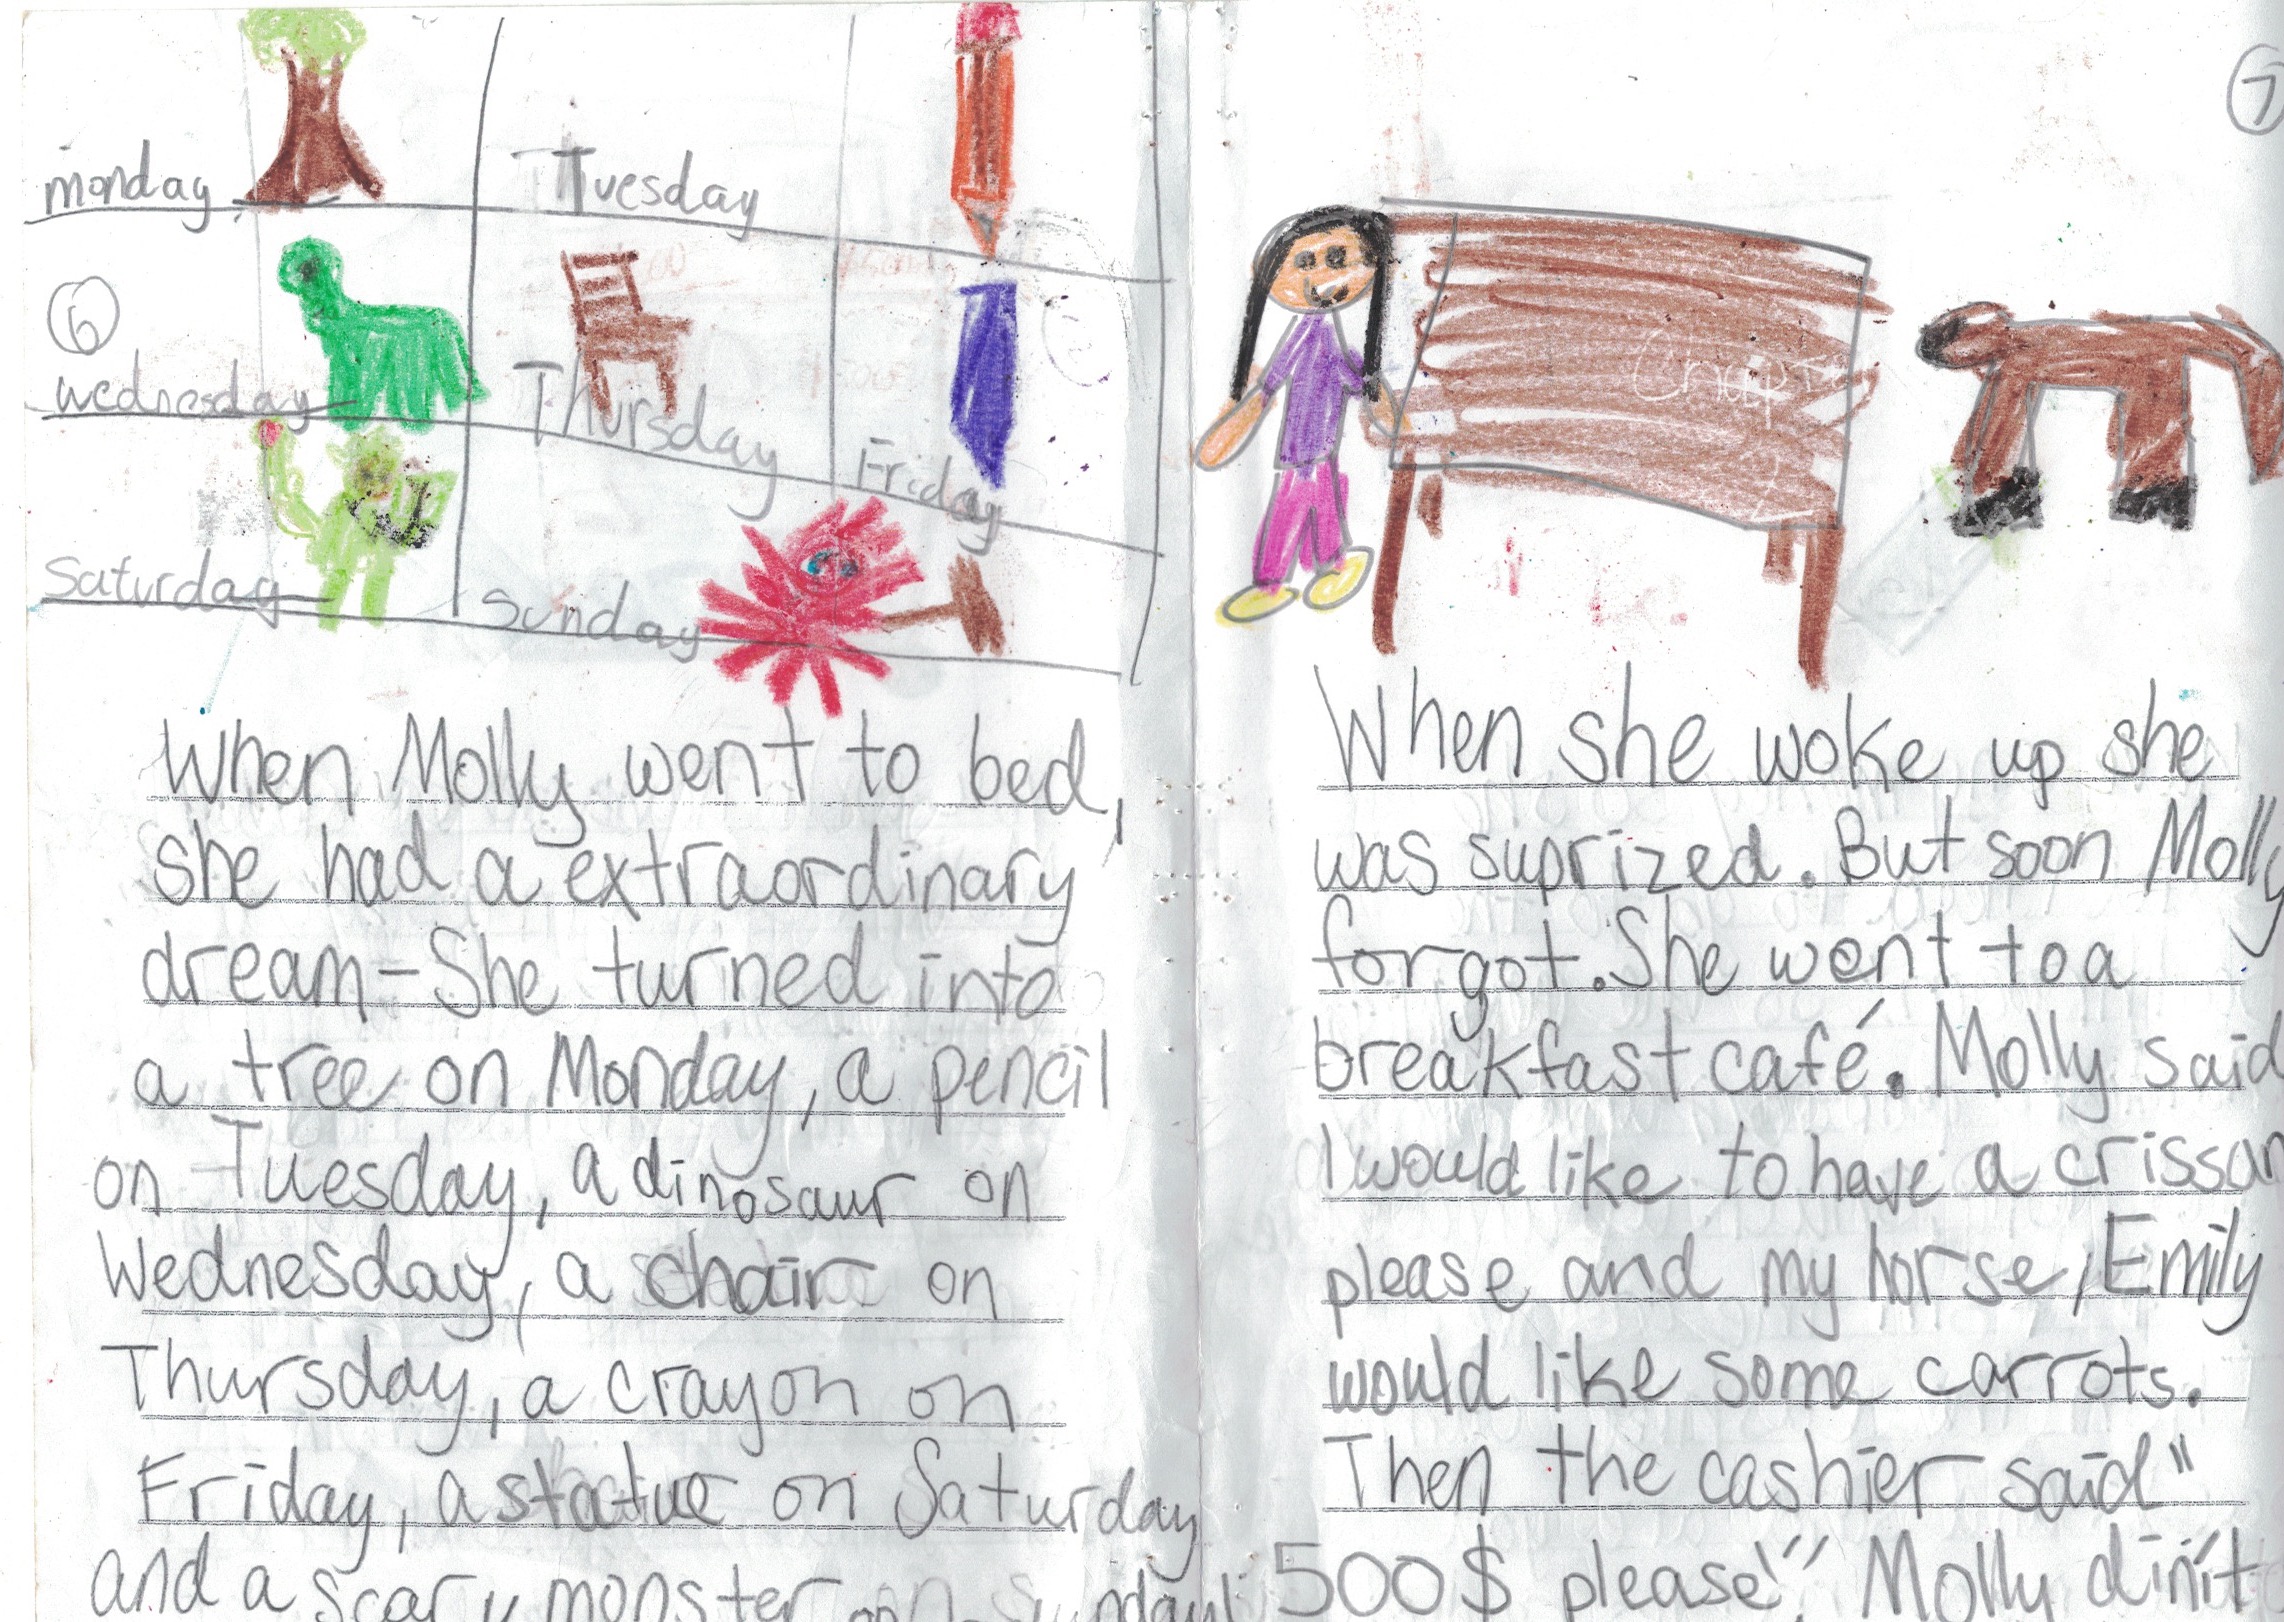 monday
Tuesday
6
wednesday
Thursday
Friday
Saturday
Sunday
When Molly went to bed,
she had a extraordinary
dream-She turned into
a tree on Monday, a pencil
on Tuesday, a dinosaur on
Wednesday, a chair on
Thursday, a crayon on
Friday, a statue on Saturday
and a scary monster on Sunday!
7
When she woke up she
was suprized. But soon Molly
forgot. She went to a
breakfast café. Molly said
I would like to have a crissan
please and my horse, Emily
would like some carrots.
Then the cashier said"
500$ please!" Molly din't